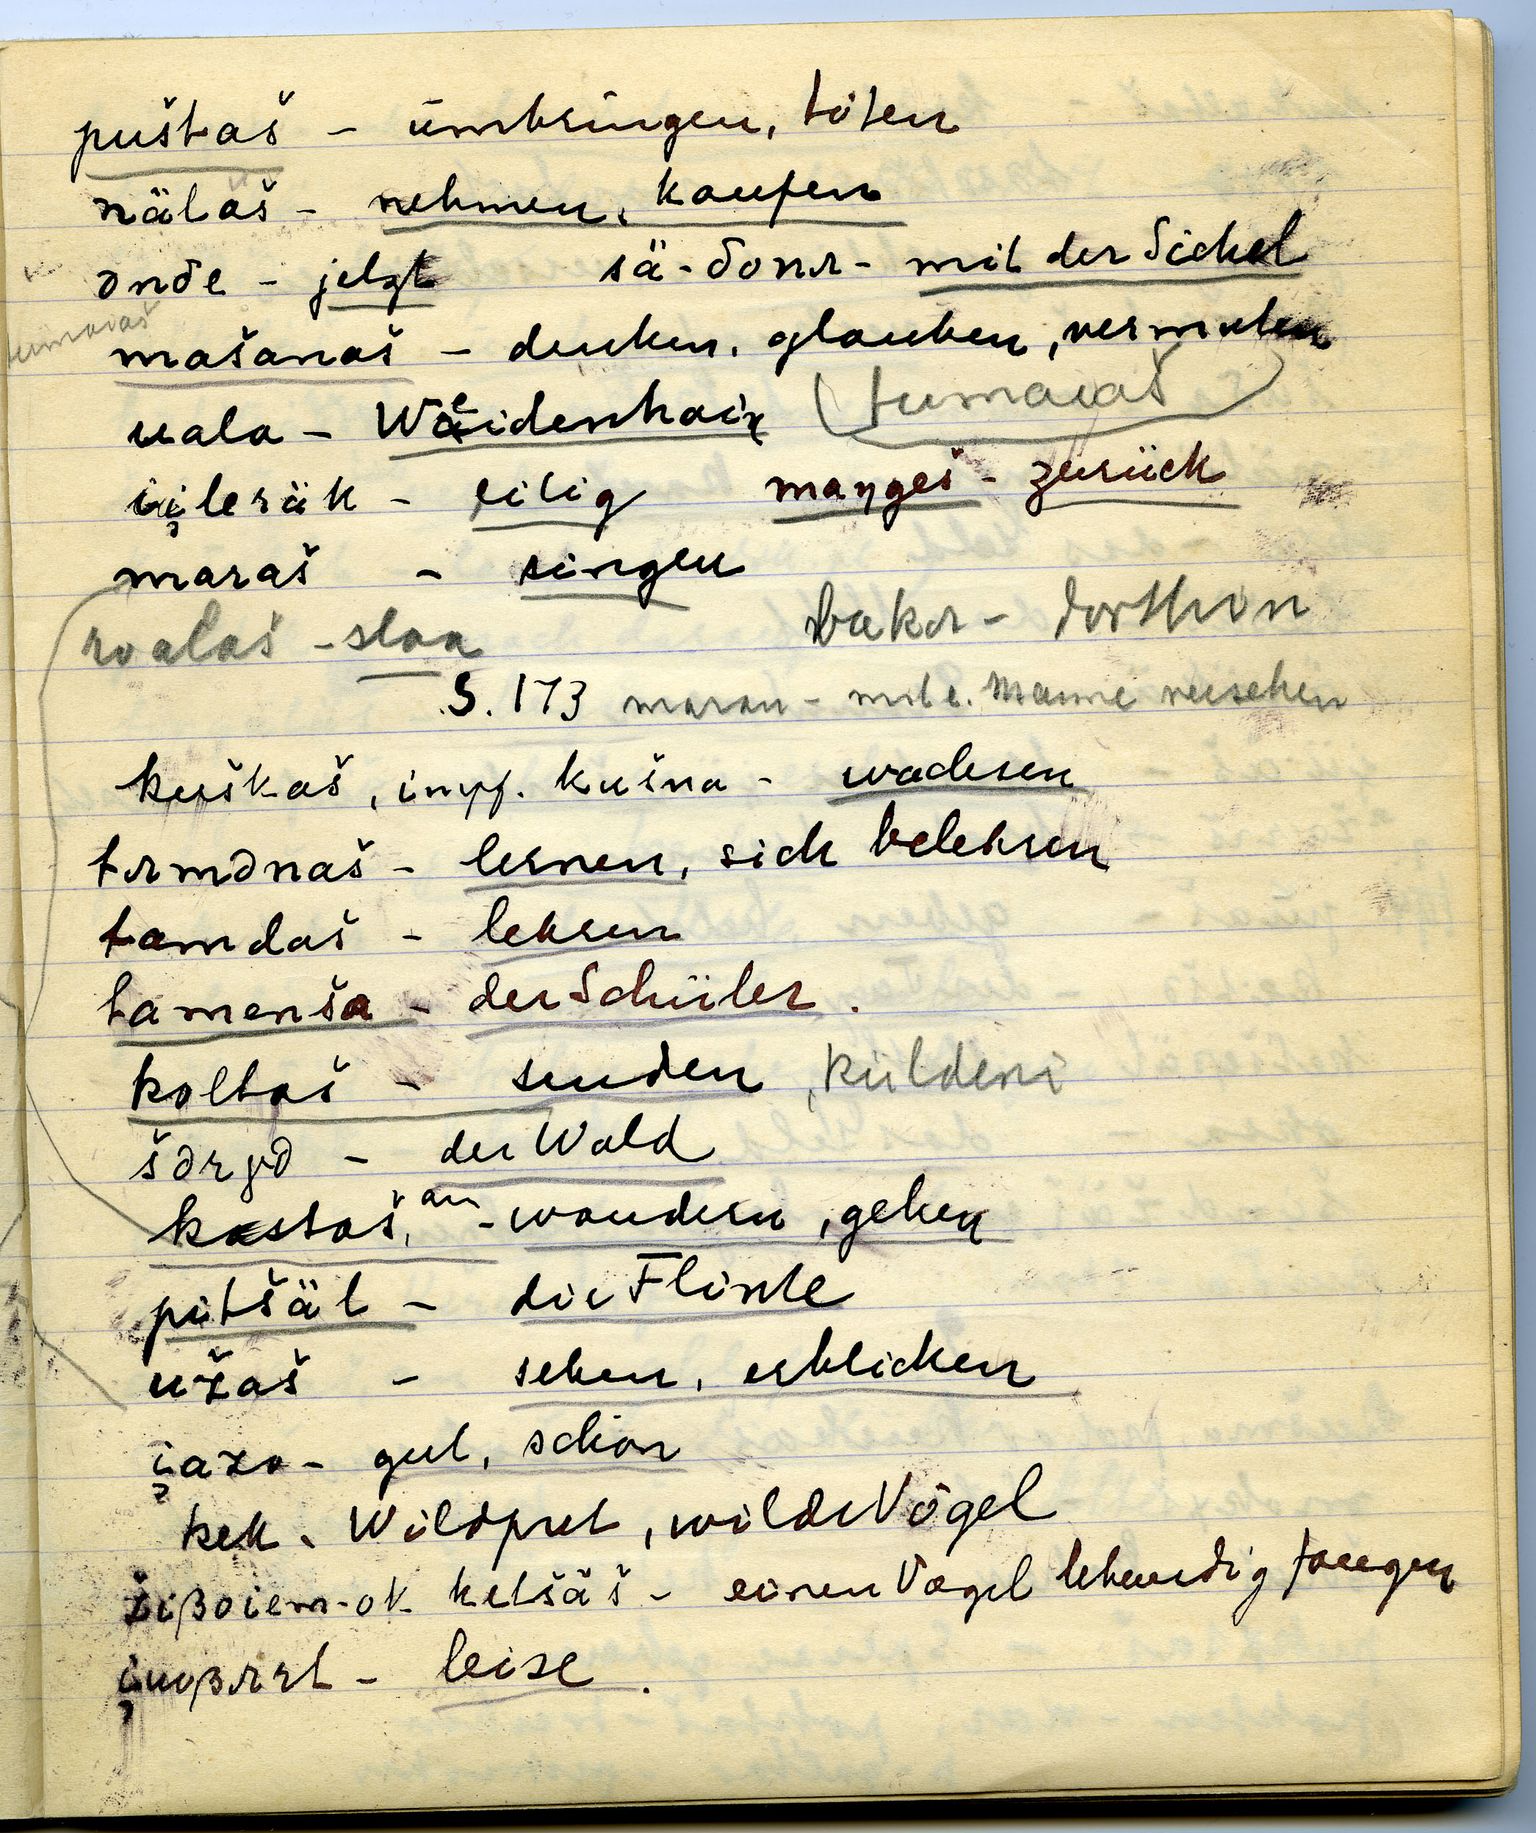 puštaš - umbringen, töten
nälaš - nehmen, kaufen
ənδe - jetzt sä-δonʌ - mit der Sichel
tumaιaš
mašanaš - denken, glauben, vermuten
uala - Weidenhain (tumaιaš)
i̯leräk - eilig maŋgeš - zurück
maraš - singen
βakʌ - dorthin
S. 173 maran - mit e. Manne versehen
kuškaš, impf. kušna - wachsen
tʌmənaš - lernen, sich belehren
tamdaš - lehren
tamenša - der Schüler.
koltaš - senden, küldeni
šərγə - der Wald
kaštaš, am - wandern, gehen
pitšäl - die Flinte
užaš - sehen, erblicken
i̯aχo - gut, schön
kek - Wildpret, wilde Vögel
kətšäš - einen Vogel lebendig fangen
- leise.